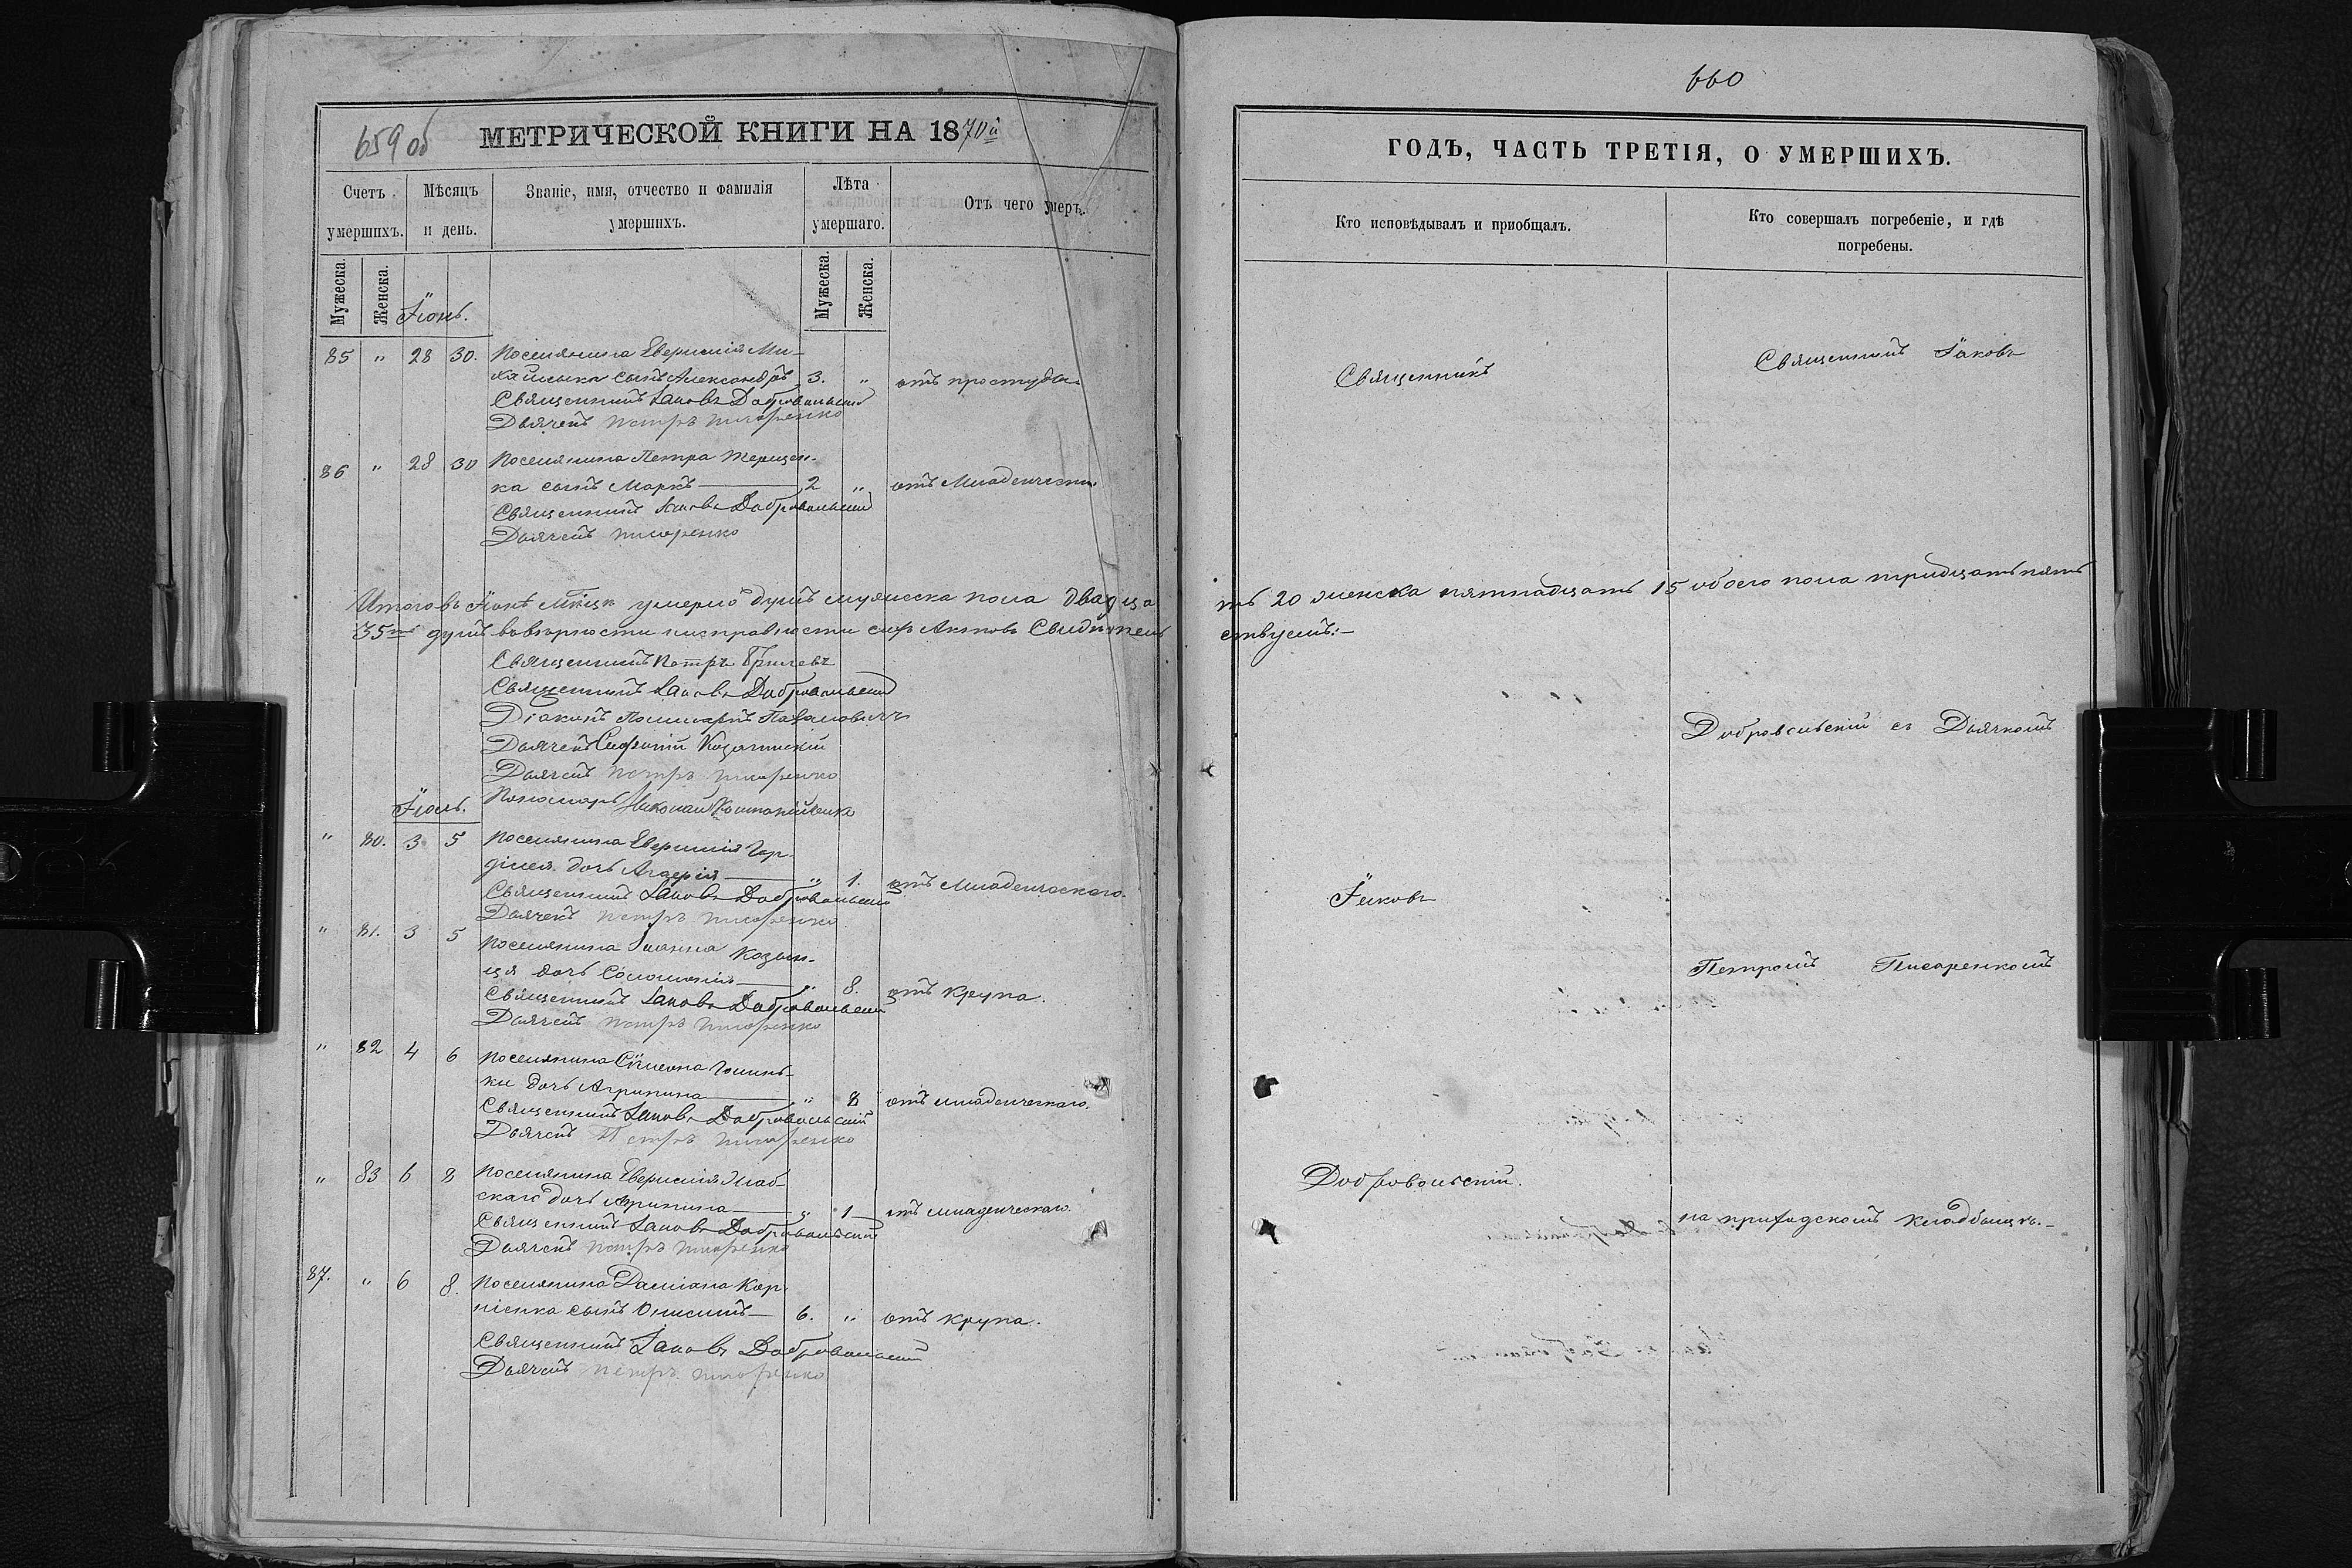 659 об
МЕТРИЧЕСКОЙ КНИГИ НА 1870й
Счетъ умершихъ.
Мѣсяцъ и день.
Званіе, имя, отчество и фамилія умершихъ.
Лѣта умершаго.
Отъ чего умеръ.
Мужеска.
Женска.
Мужеска.
Женска.
Іюнь.
85 " 28 30. Поселянина Евфимія Ми-
хайлыка сынъ Александръ 3. " отъ простуды
Священникъ Іаковъ Добровольскій
Дьячекъ Петръ Писаренко
86 " 28 30 Поселянина Петра Терещен-
ка сынъ Маркъ 2 " отъ Младенческ
Священникъ Іаковъ Добровольскій
Дьячекъ Писаренко
Итого въ Іюнѣ Мѣсяцѣ умерло душъ мужеска пола двадца
35ть душъ въ вѣрности и исправности сихъ Актовъ Свидѣтель
Священникъ Петръ
Священникъ Іаковъ Добровольскій
Діаконъ Поликарпъ
Дьячекъ
Дьячекъ Петръ Писаренко
Пономарь Николай
Іюль.
" 80. 3 5 Поселянина Евфимія
дочь " 1. отъ Младенческаго.
Священникъ Іаковъ Добровольскій
Дьячекъ Петръ Писаренко
" 81. 3 5 Поселянина Іоанна Козын-
ця дочь Соломонія " 8. отъ крупа.
Священникъ Іаковъ Добровольскій
Дьячекъ Петръ Писаренко
" 82 4 6 Поселянина Сімеона
ки дочь Агрипина " 8 отъ младенческаго.
Священникъ Іаковъ Добровольскій
Дьячекъ Петръ Писаренко
" 83 6 8 Поселянина Евфимія
скаго дочь Агрипина " 1 отъ младенческаго.
Священникъ Іаковъ Добровольскій
Дьячекъ Петръ Писаренко
87. " 6 8. Поселянина Даміана Кор-
ніенка сынъ Онисимъ 6. " отъ крупа.
Священникъ Іаковъ Добровольскій
Дьячекъ Петръ Писаренко
660
ГОДЪ, ЧАСТЬ ТРЕТІЯ, О УМЕРШИХЪ.
Кто исповѣдывалъ и пріобщалъ.
Кто совершалъ погребеніе, и гдѣ
погребены.
Священникъ
Священникъ Іаковъ
ть 20 женска пятнадцать 15 обоего пола тридцать пять
ствуемъ:-
Добровольскій съ Дьячкомъ
Іаковъ
Петромъ Писаренкомъ
Добровольскій.
на приходскомъ кладбищѣ.-